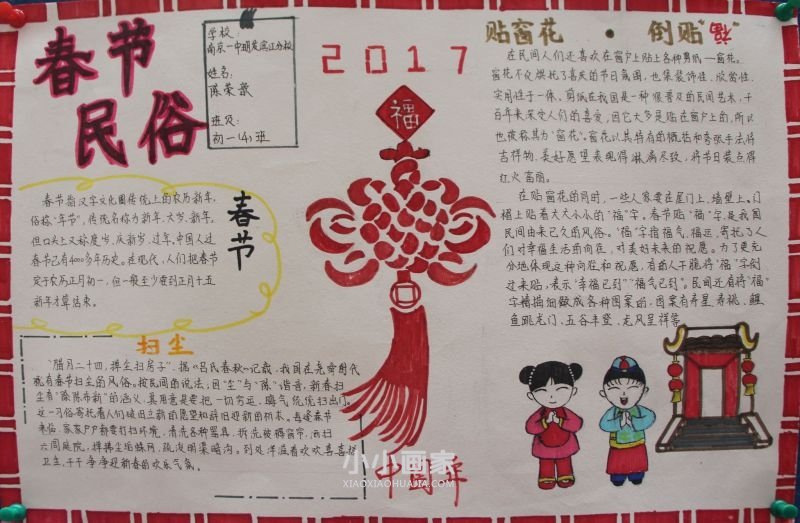 春节
民俗
学校：
南京一中明发滨江分校
姓名：
陈荣薇
班级：
初一(4)班
2017
福
春节
春节指汉字文化圈传统上的农历新年，
俗称"年节"，传统名称为新年、大岁、新年，
但口头上又称度岁、庆新岁、过年。中国人过
春节已有4000多年历史。在现代，人们把春节
定于农历正月初一，但一般至少要到正月十五
新年才算结束。
扫尘
"腊月二十四，掸尘扫房子"，据《吕氏春秋》记载，我国在尧舜时代
就有春节扫尘的风俗。按民间的说法：因"尘"与"陈"谐音，新春扫
尘有"除陈布新"的涵义，其用意是要把一切穷运、晦气统统扫出门。
这一习俗寄托着人们破旧立新的愿望和辞旧迎新的祈求。每逢春节
来临，家家户户都要打扫环境，清洗各种器具，拆洗被褥窗帘，洒扫
六闾庭院，掸拂尘垢蛛网，疏浚明渠暗沟。到处洋溢着欢欢喜喜搞
卫生、干干净净迎新春的欢乐气氛。
中国年
贴窗花 · 倒贴"福"
在民间人们还喜欢在窗户上贴上各种剪纸—窗花。
窗花不仅烘托了喜庆的节日氛围，也集装饰性、欣赏性、
实用性于一体。剪纸在我国是一种很普及的民间艺术，千
百年来深受人们的喜爱，因它大多是贴在窗户上的，所以
也被称其为"窗花"。窗花以其特有的概括和夸张手法将
吉祥物、美好愿望表现得淋漓尽致，将节日装点得
红火富丽。
在贴窗花的同时，一些人家要在屋门上、墙壁上、门
楣上贴着大大小小的"福"字。春节贴"福"字，是我国
民间由来已久的风俗。"福"字指福气、福运，寄托了人
们对幸福生活的向往，对美好未来的祝愿。为了更充
分地体现这种向往和祝愿，有的人干脆将"福"字倒
过来贴，表示"幸福已到""福气已到"。民间还有将"福"
字精描细做成各种图案的，图案有寿星、寿桃、鲤
鱼跳龙门、五谷丰登、龙凤呈祥等
小小画家
XIAOXIAOHUAJIA.COM